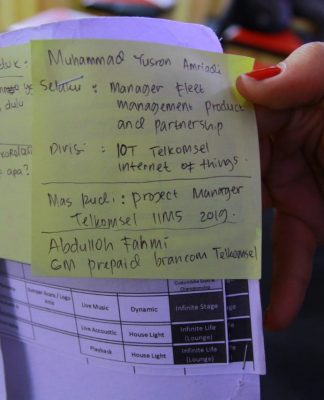 Muhammad Yusron Amriadi
Selaku : Manager Fleet
management Product
and partnership
Divisi : IOT Telkomsel
Internet of things.
Mas Rudi : Project Manager
Telkomsel IIMS 2019.
Abdulloh Fahmi
GM prepaid brancom Telkomsel
duk :
dulu
apa?
Live Music Dynamic Infinite Stage
Live Accoustic House Light Infinite Life (Lounge)
Playback House Light Infinite Life (Lounge)